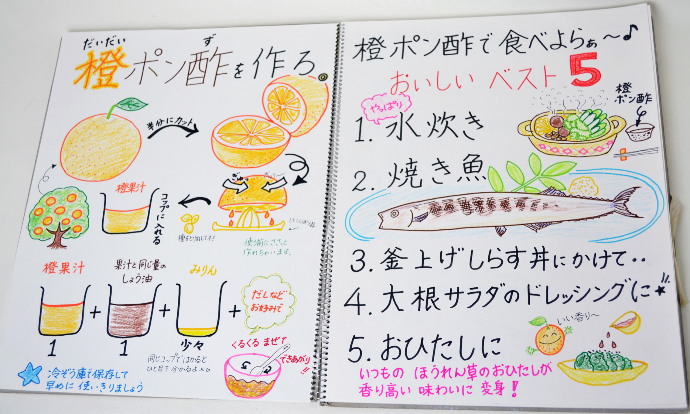 だいだい ず
橙ポン酢を作ろ。
半分にカット
橙果汁
コップに入れる
橙果汁
果汁と同じ量の
しょう油
みりん
だしなど
お好みで
+ + +
1 1 少々
くるくる まぜて
できあがり!!
冷ぞう庫で保存して
早めに 使いきりましょう
橙ポン酢で食べよらぁ〜♪
おいしい ベスト 5
やっぱり
1 水炊き
橙
ポン酢
2. 焼き魚
3. 釜上げしらす丼にかけて‥
4. 大根サラダのドレッシングに
いい香り〜
5. おひたしに
いつもの ほうれん草のおひたしが
香り高い 味わいに 変身!